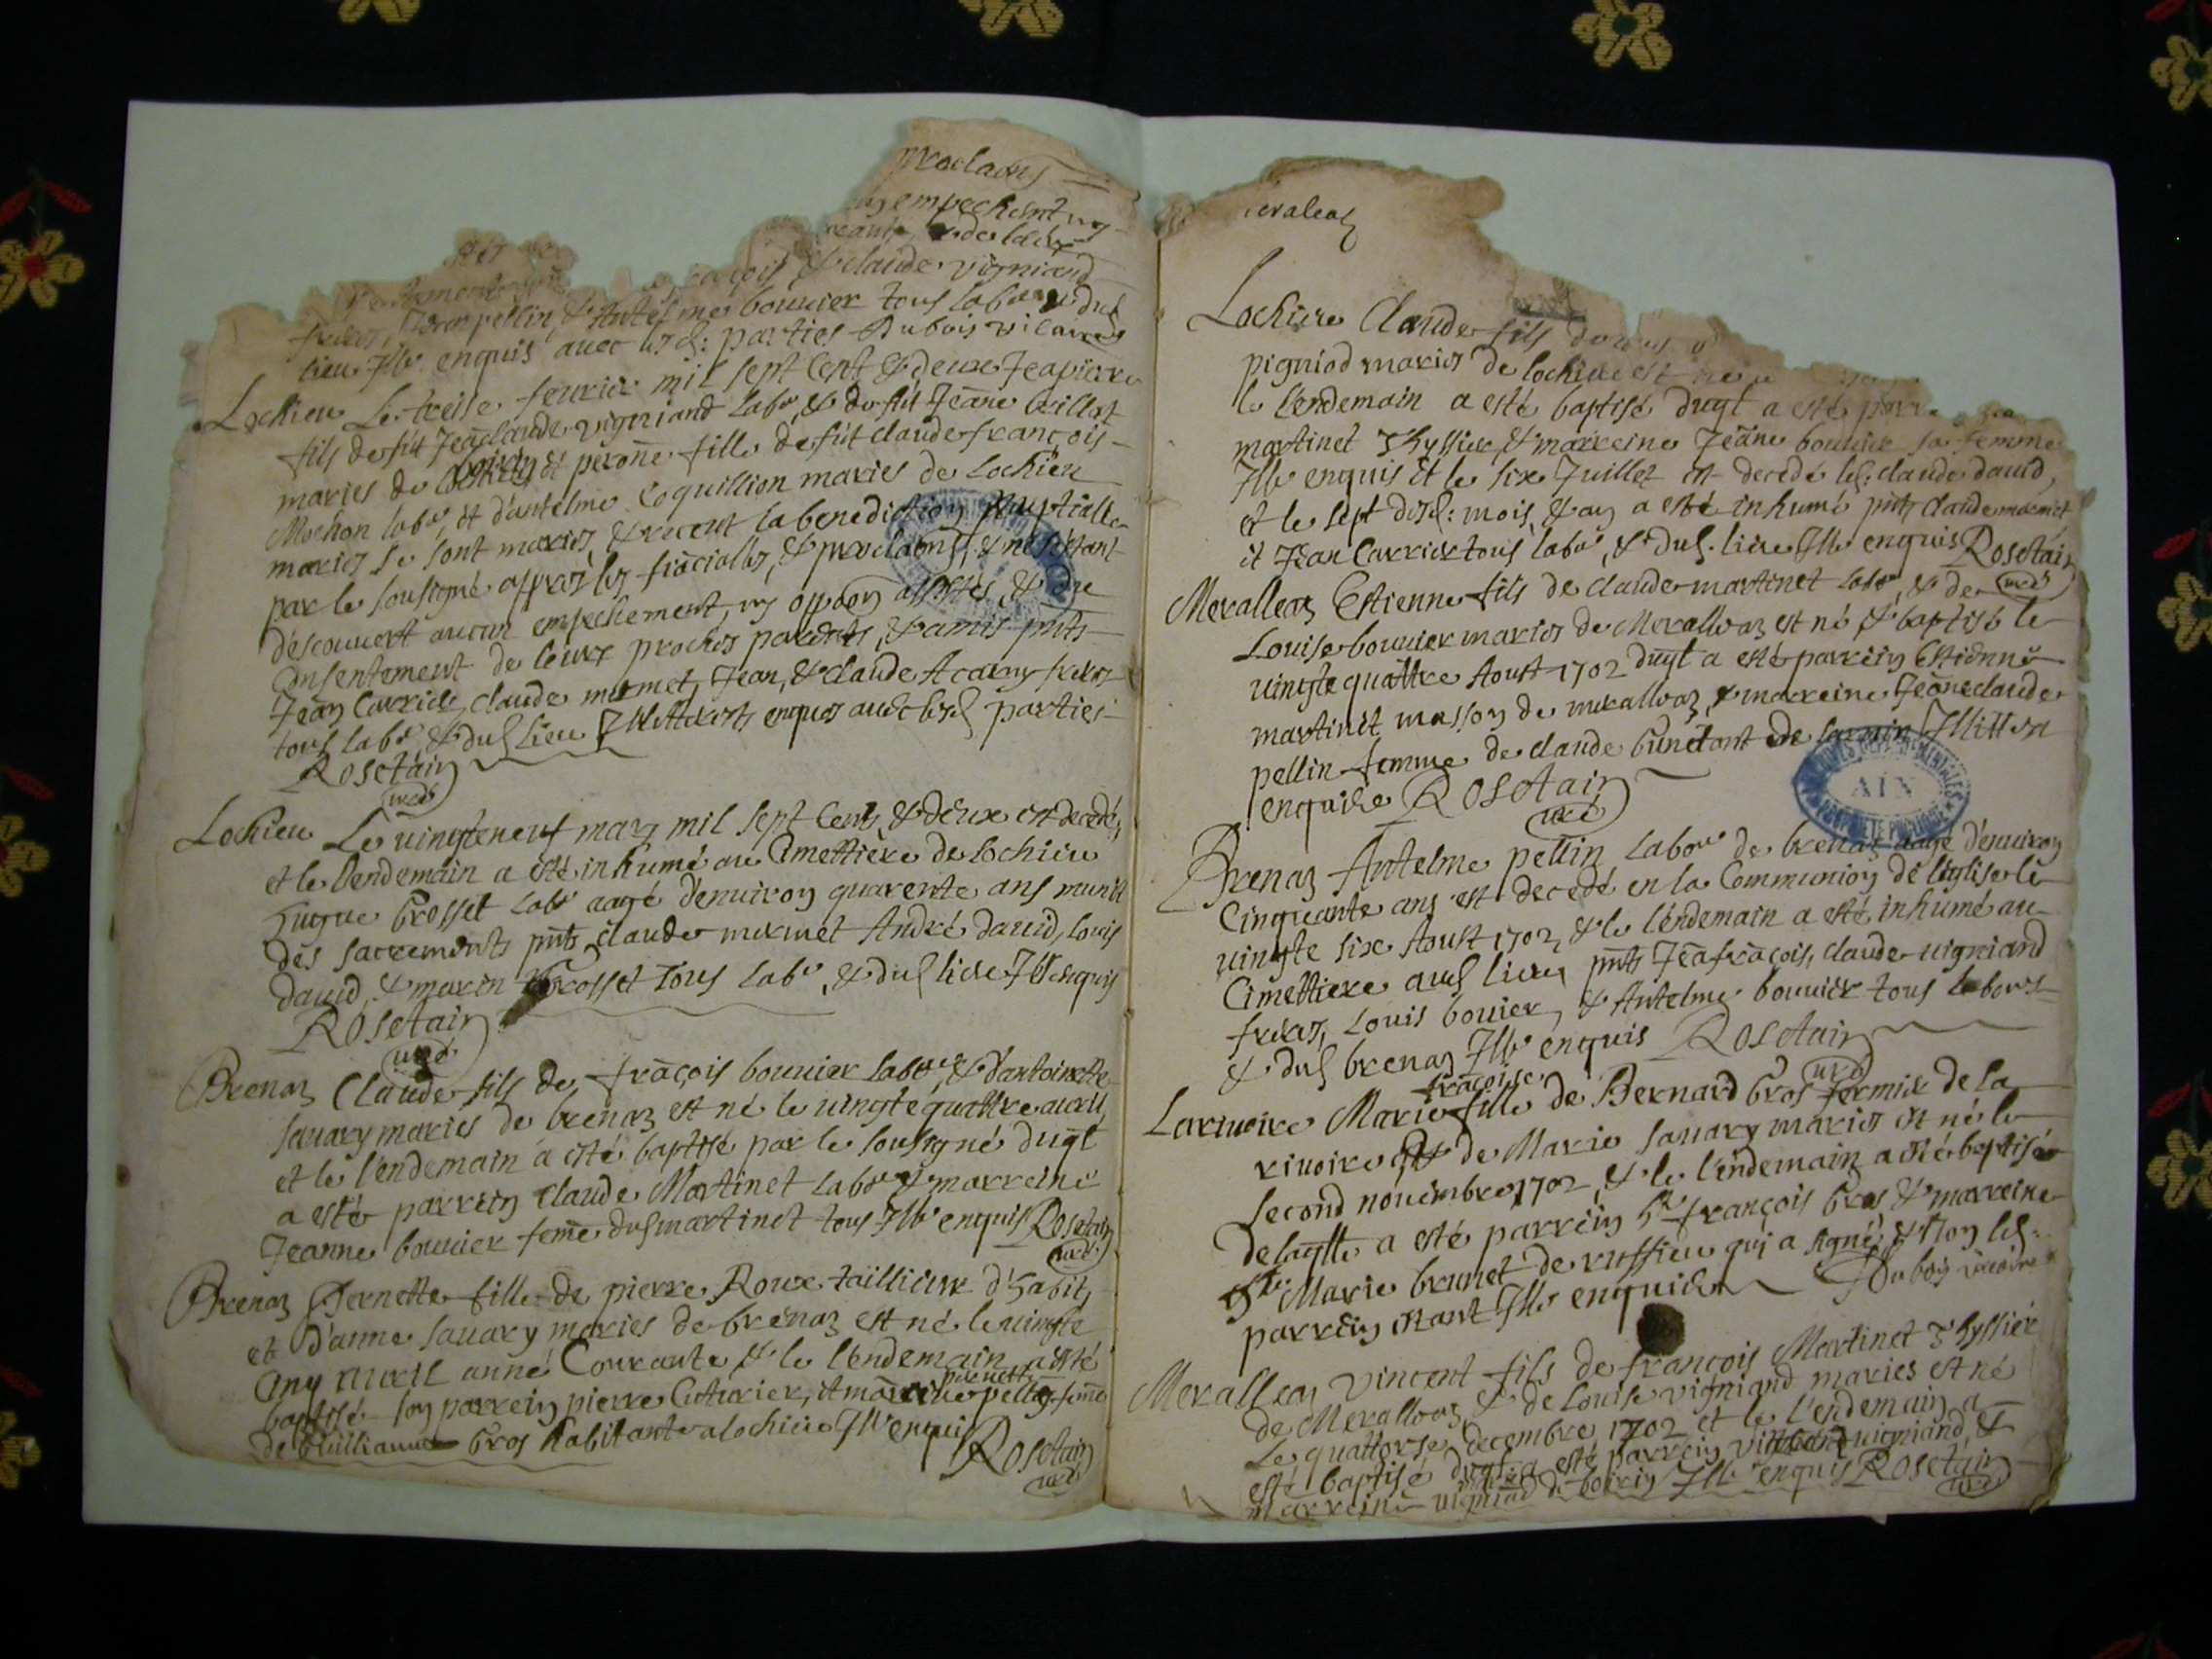 proclaõns
empechent ny
claude vigniand
pellin, & Antelme bouuier tous labrs & dud
lieu Illr enquis auec lesd: parties Dubois vicaire
Lochieu Le treise feurier mil sept Cent & deux
fils de fut Jeãclaude vigniand labr & de fut Jeãne brillat
maries de & perone fille de fut claude françois
Mochon labr et d'antelme Coquillion maries de Lochieu
maries se sont maries, & receut la benediction nuptialle
par le soubsigné appres les fiãcialles, & proclaõns, & ne s'estant
descouvert aucun empechement, ny oppõon
Consentement de leurs proches parents, & amis pnts
Jean Carrier, claude mermet, Jean, & claude Acarry freres
tous labr & dud lieu enquis auec lesd parties
Rosetain
curé
Lochieu Le uingteneuf mars mil sept Cent & deux est decedé,
et le lendemain a esté inhumé au Cimettiere de Lochieu
hugue Grosset labr aagé denuiron quarente ans munit
des sacrements pnts claude mermet André dauid, louis
dauid, & marin Grosset tous labr, & dud lieu Illr enquis
Rosetain
curé
Brenaz Claude fils de frãçois bouuier labr & d'antoinette
sauary maries de brenaz est né le uingtequattre auril,
et le l'endemain a esté baptisé par le soubsigné duqt
a esté parrein Claude Martinet labr & marreine
Jeanne bouuier feme dud martinet tous Illr enquis Rosetain
curé
Brenaz Pernette fille de pierre Roux taillieur d'habit,
et D'anne sauary maries de brenaz est né le uingte
Cinq auril anné Courante & le l'endemain a esté
pernette
baptisé son parrein pierre Cuturier, et marreine pellin feme
de Guilliaume Gros habitante a lochieu Illr enquis
Rosetain
curé
Lochieu Claude fils
pigniod maries de lochieu est né
le l'endemain a esté baptisé duqt a esté
martinet Thyssier, & marreine Jeãne bouuier sa femme
Illr enquis Et le six Juillet est decedé led: claude dauid,
et le sept dusd: mois, & an a esté inhumé pnts claude mermet
et Jean Carrier tous labr, & dud. lieu Illr enquis Rosetain
curé
Meralleaz Estienne fils de claude martinet labr, & de
Louise bouuier maries de Meralleaz est né & baptisé le
uingtequattre Aoust 1702 duqt a esté parrein Estienne
martinet masson de meralleaz, & marreine Jeãneclaude
pellin femme de claude
enquise Rosetain
curé
Brenaz Antelme pellin labour de brenaz aagé d'enuiron
Cinquante ans est decedé en la Communion de l'eglise le
uingte six Aoust 1702, & le l'endemain a esté inhumé au
Cimettiere aud lieu pnts Jeãfrãçois, claude uigniand
freres, Louis bouuier, & Antelme bouuier tous labours
& dud brenaz Illr enquis Rosetain
curé
frãçoise
Lariuoire Marie fille de Bernard Gros fermier de la
riuoire & de Marie sauary maries est né le
second nouembre 1702, & le l'endemain a esté baptisée
de laqlle a esté parrein Sr françois Gros & marreine
Marie brunet de ruffieu qui a signé, & non led.
parrein estant Illr enquis Dubois vicaire
Meralleaz Vincent fils de françois Martinet Thyssier
de Meralleaz, & de Louise vigniand maries est né
Le quattorse decembre 1702 et le l'endemain a
esté baptisé duqt a esté parrein Vincent uigniand, &
marreine uigniand Illr enquis Rosetain
curé
AIX